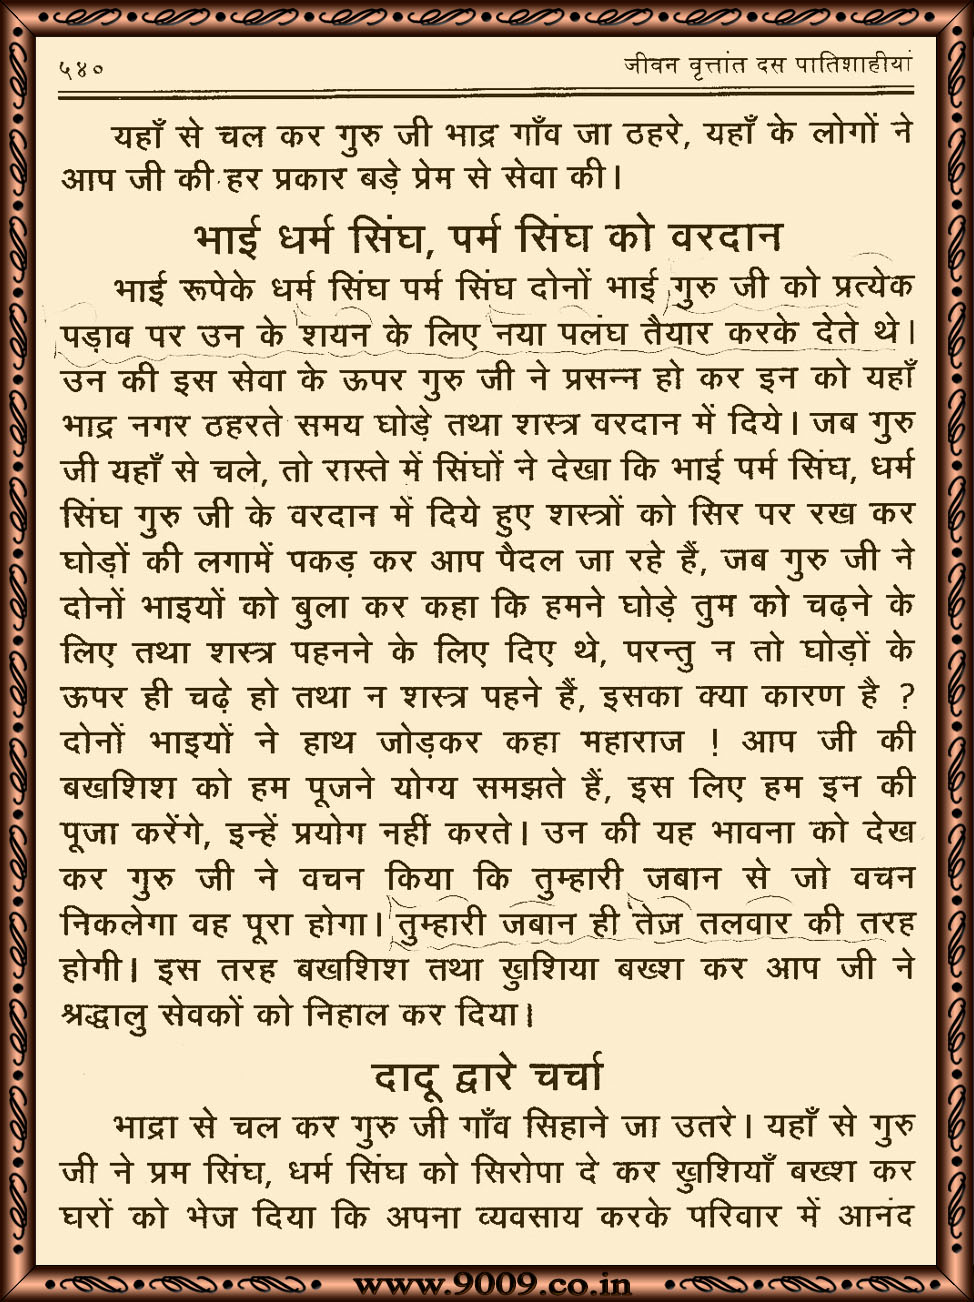 ५४०
जीवन वृत्तांत दस पातिशाहीयां
यहाँ से चल कर गुरु जी भाद्र गाँव जा ठहरे, यहाँ के लोगों ने
आप जी की हर प्रकार बड़े प्रेम से सेवा की।
भाई धर्म सिंघ, पर्म सिंघ को वरदान
भाई रूपेके धर्म सिंघ पर्म सिंघ दोनों भाई गुरु जी को प्रत्येक
पड़ाव पर उन के शयन के लिए नया पलंघ तैयार करके देते थे।
उन की इस सेवा के ऊपर गुरु जी ने प्रसन्न हो कर इन को यहाँ
भाद्र नगर ठहरते समय घोड़े तथा शस्त्र वरदान में दिये। जब गुरु
जी यहाँ से चले, तो रास्ते में सिंघों ने देखा कि भाई पर्म सिंघ, धर्म
सिंघ गुरु जी के वरदान में दिये हुए शस्त्रों को सिर पर रख कर
घोड़ों की लगामें पकड़ कर आप पैदल जा रहे हैं, जब गुरु जी ने
दोनों भाइयों को बुला कर कहा कि हमने घोड़े तुम को चढ़ने के
लिए तथा शस्त्र पहनने के लिए दिए थे, परन्तु न तो घोड़ों के
ऊपर ही चढ़े हो तथा न शस्त्र पहने हैं, इसका क्या कारण है ?
दोनों भाइयों ने हाथ जोड़कर कहा महाराज ! आप जी की
बखशिश को हम पूजने योग्य समझते हैं, इस लिए हम इन की
पूजा करेंगे, इन्हें प्रयोग नहीं करते। उन की यह भावना को देख
कर गुरु जी ने वचन किया कि तुम्हारी जबान से जो वचन
निकलेगा वह पूरा होगा। तुम्हारी जबान ही तेज़ तलवार की तरह
होगी। इस तरह बखशिश तथा खुशिया बख्श कर आप जी ने
श्रद्धालु सेवकों को निहाल कर दिया।
दादू द्वारे चर्चा
भाद्रा से चल कर गुरु जी गाँव सिहाने जा उतरे। यहाँ से गुरु
जी ने प्रम सिंघ, धर्म सिंघ को सिरोपा दे कर खुशियाँ बख्श कर
घरों को भेज दिया कि अपना व्यवसाय करके परिवार में आनंद
www.9009.co.in